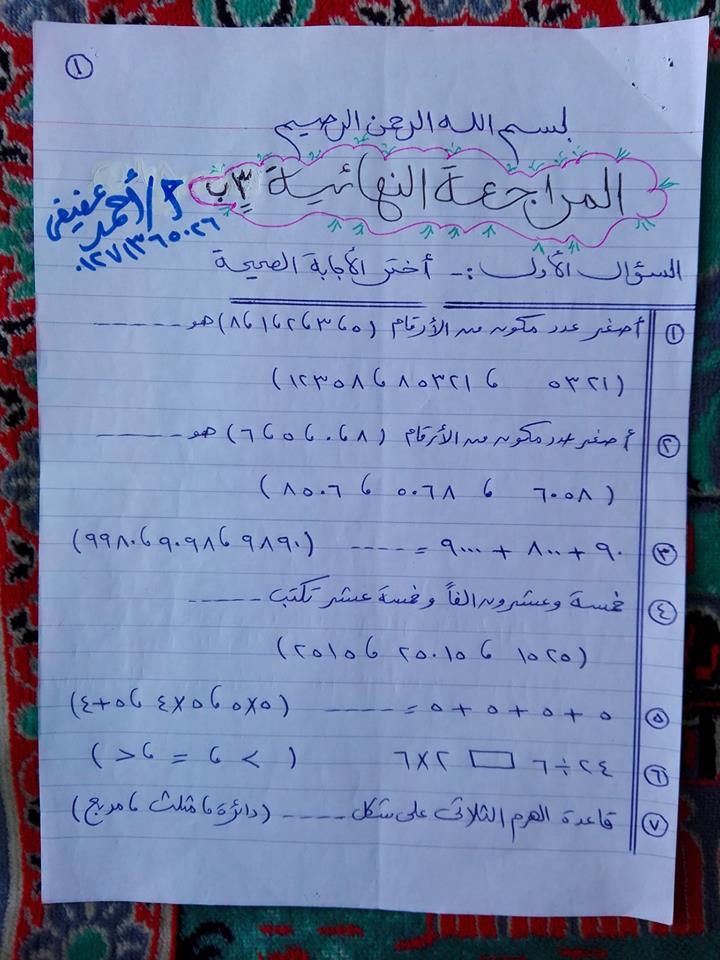 ١
بسم الله الرحمن الرحيم
المراجعة النهائية ٣ ب
أ/ أحمد عفيفي
٠١٢٧١٣٦٥٠٢٦
السؤال الأول :- أختر الأجابة الصحيحة
١ أصغر عدد مكون من الأرقام (٥ ، ٣ ، ٢ ، ١ ، ٨) هو -----
(٥٣٢١ ، ٨٥٣٢١ ، ١٢٣٥٨)
٢ أصغر عدد مكون من الأرقام (٨ ، ٠ ، ٥ ، ٦) هو -----
(٦٠٥٨ ، ٥٠٦٨ ، ٨٥٠٦)
٣ ٩٠ + ٨٠٠ + ٩٠٠٠ = ---- (٩٨٩٠ ، ٩٠٩٨ ، ٩٩٨٠)
٤ خمسة وعشرون الفاً وخمسة عشر تكتب -----
(١٥٢٥ ، ٢٥٠١٥ ، ٢٥١٥)
٥ ٥ + ٥ + ٥ + ٥ = ----- (٥×٥ ، ٥×٤ ، ٥+٤)
٦ ٢٤ ÷ ٦ □ ٢ × ٦ ( < ، = ، > )
٧ قاعدة الهرم الثلاثى على شكل ---- (دائرة ، مثلث ، مربع)